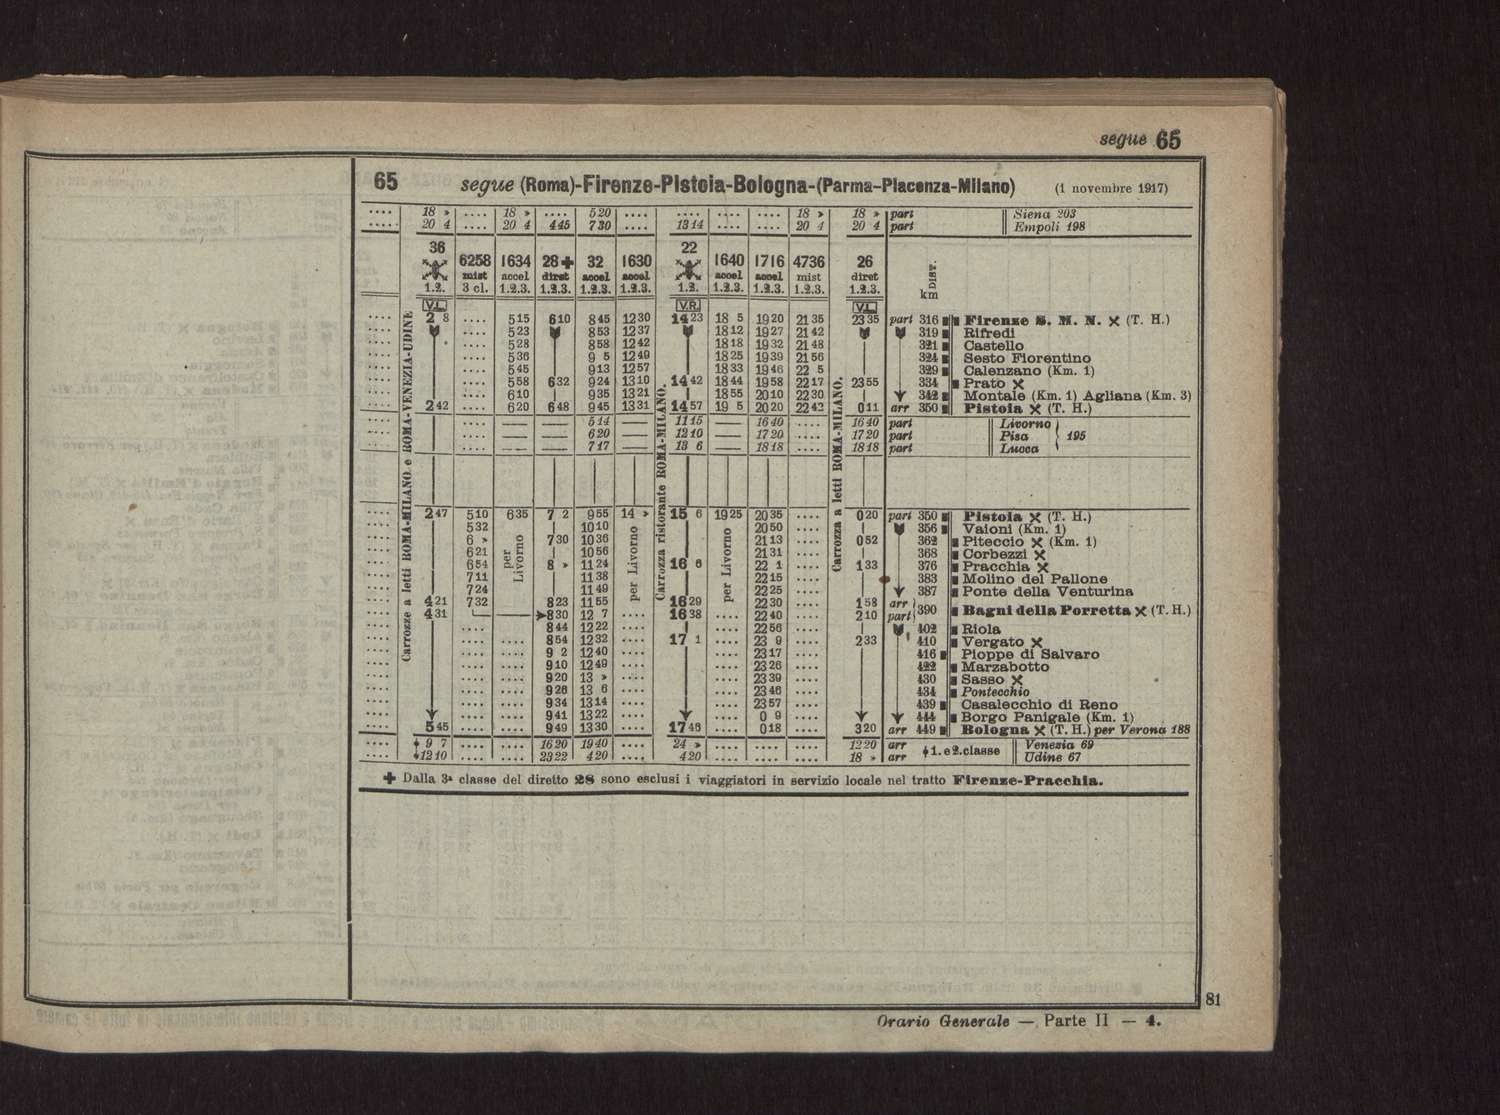 segue 65
65 segue (Roma)-Firenze-Pistoia-Bologna-(Parma-Piacenza-Milano) (1 novembre 1917)
.... 18 » .... 18 » .... 5 20 .... .... .... .... 18 » 18 » part Siena 203
.... 20 4 .... 20 4 4 45 7 30 .... 13 14 .... .... 20 4 20 4 part Empoli 198
36 22
6258 1634 28 ✚ 32 1630 1640 1716 4736 26
mist accel diret accel accel accel accel mist diret
1.2. 3 cl. 1.2.3. 1.2.3. 1.2.3. 1.2.3. 1.2. 1.2.3. 1.2.3. 1.2.3. 1.2.3. km DIST.
V.L. V.R. V.L.
.... 2 8 .... 5 15 6 10 8 45 12 30 14 23 18 5 19 20 21 35 23 35 part 316 Firenze S. M. N. (T. H.)
.... .... 5 23 8 53 12 37 18 12 19 27 21 42 319 Rifredi
.... .... 5 28 8 58 12 42 18 18 19 32 21 48 321 Castello
.... .... 5 36 9 5 12 49 18 25 19 39 21 56 324 Sesto Fiorentino
.... .... 5 45 9 13 12 57 18 33 19 46 22 5 329 Calenzano (Km. 1)
.... .... 5 58 6 32 9 24 13 10 14 42 18 44 19 58 22 17 23 55 334 Prato
.... .... 6 10 9 35 13 21 18 55 20 10 22 30 342 Montale (Km. 1) Agliana (Km. 3)
.... 2 42 .... 6 20 6 48 9 45 13 31 14 57 19 5 20 20 22 42 0 11 arr 350 Pistoia (T. H.)
.... .... — — 5 14 — 11 15 — 16 40 .... 16 40 part Livorno
.... .... — — 6 20 — 12 10 — 17 20 .... 17 20 part Pisa 195
.... .... — — 7 17 — 13 6 — 18 18 .... 18 18 part Lucca
.... 2 47 5 10 6 35 7 2 9 55 14 » 15 6 19 25 20 35 .... 0 20 part 350 Pistoia (T. H.)
.... 5 32 10 10 20 50 .... 356 Vaioni (Km. 1)
.... 6 » 7 30 10 36 21 13 .... 0 52 362 Piteccio (Km. 1)
.... 6 21 10 56 21 31 .... 368 Corbezzi
.... 6 54 8 » 11 24 16 6 22 1 .... 1 33 376 Pracchia
.... 7 11 11 38 22 15 .... 383 Molino del Pallone
.... 7 24 11 49 22 25 .... 387 Ponte della Venturina
.... 4 21 7 32 8 23 11 55 16 29 22 30 .... 1 58 arr 390 Bagni della Porretta (T. H.)
.... 4 31 — — 8 30 12 7 .... 16 38 .... 22 40 .... 2 10 part
.... .... 8 44 12 22 .... .... 22 56 .... 402 Riola
.... .... .... 8 54 12 32 .... 17 1 .... 23 9 .... 2 33 410 Vergato
.... .... .... 9 2 12 40 .... .... 23 17 .... 416 Pioppe di Salvaro
.... .... .... 9 10 12 49 .... .... 23 26 .... 422 Marzabotto
.... .... .... 9 20 13 » .... .... 23 39 .... 430 Sasso
.... .... .... 9 26 13 6 .... .... 23 46 .... 434 Pontecchio
.... .... .... 9 34 13 14 .... .... 23 57 .... 439 Casalecchio di Reno
.... .... .... 9 41 13 22 .... .... 0 9 .... 444 Borgo Panigale (Km. 1)
.... 5 45 .... .... 9 49 13 30 .... 17 46 .... 0 18 .... 3 20 arr 449 Bologna (T. H.) per Verona 188
.... 9 7 .... .... 16 20 19 40 .... 24 » .... .... .... 12 20 arr 1. e 2. classe Venezia 69
.... 12 10 .... .... 23 22 4 20 .... 4 20 .... .... .... 18 » arr Udine 67
Carrozze a letti ROMA-MILANO. e ROMA-VENEZIA-UDINE
per Livorno
per Livorno
Carrozza ristorante ROMA-MILANO.
per Livorno
Carrozza a letti ROMA-MILANO.
✚ Dalla 3ª classe del diretto 28 sono esclusi i viaggiatori in servizio locale nel tratto Firenze-Pracchia.
81
Orario Generale — Parte II — 4.